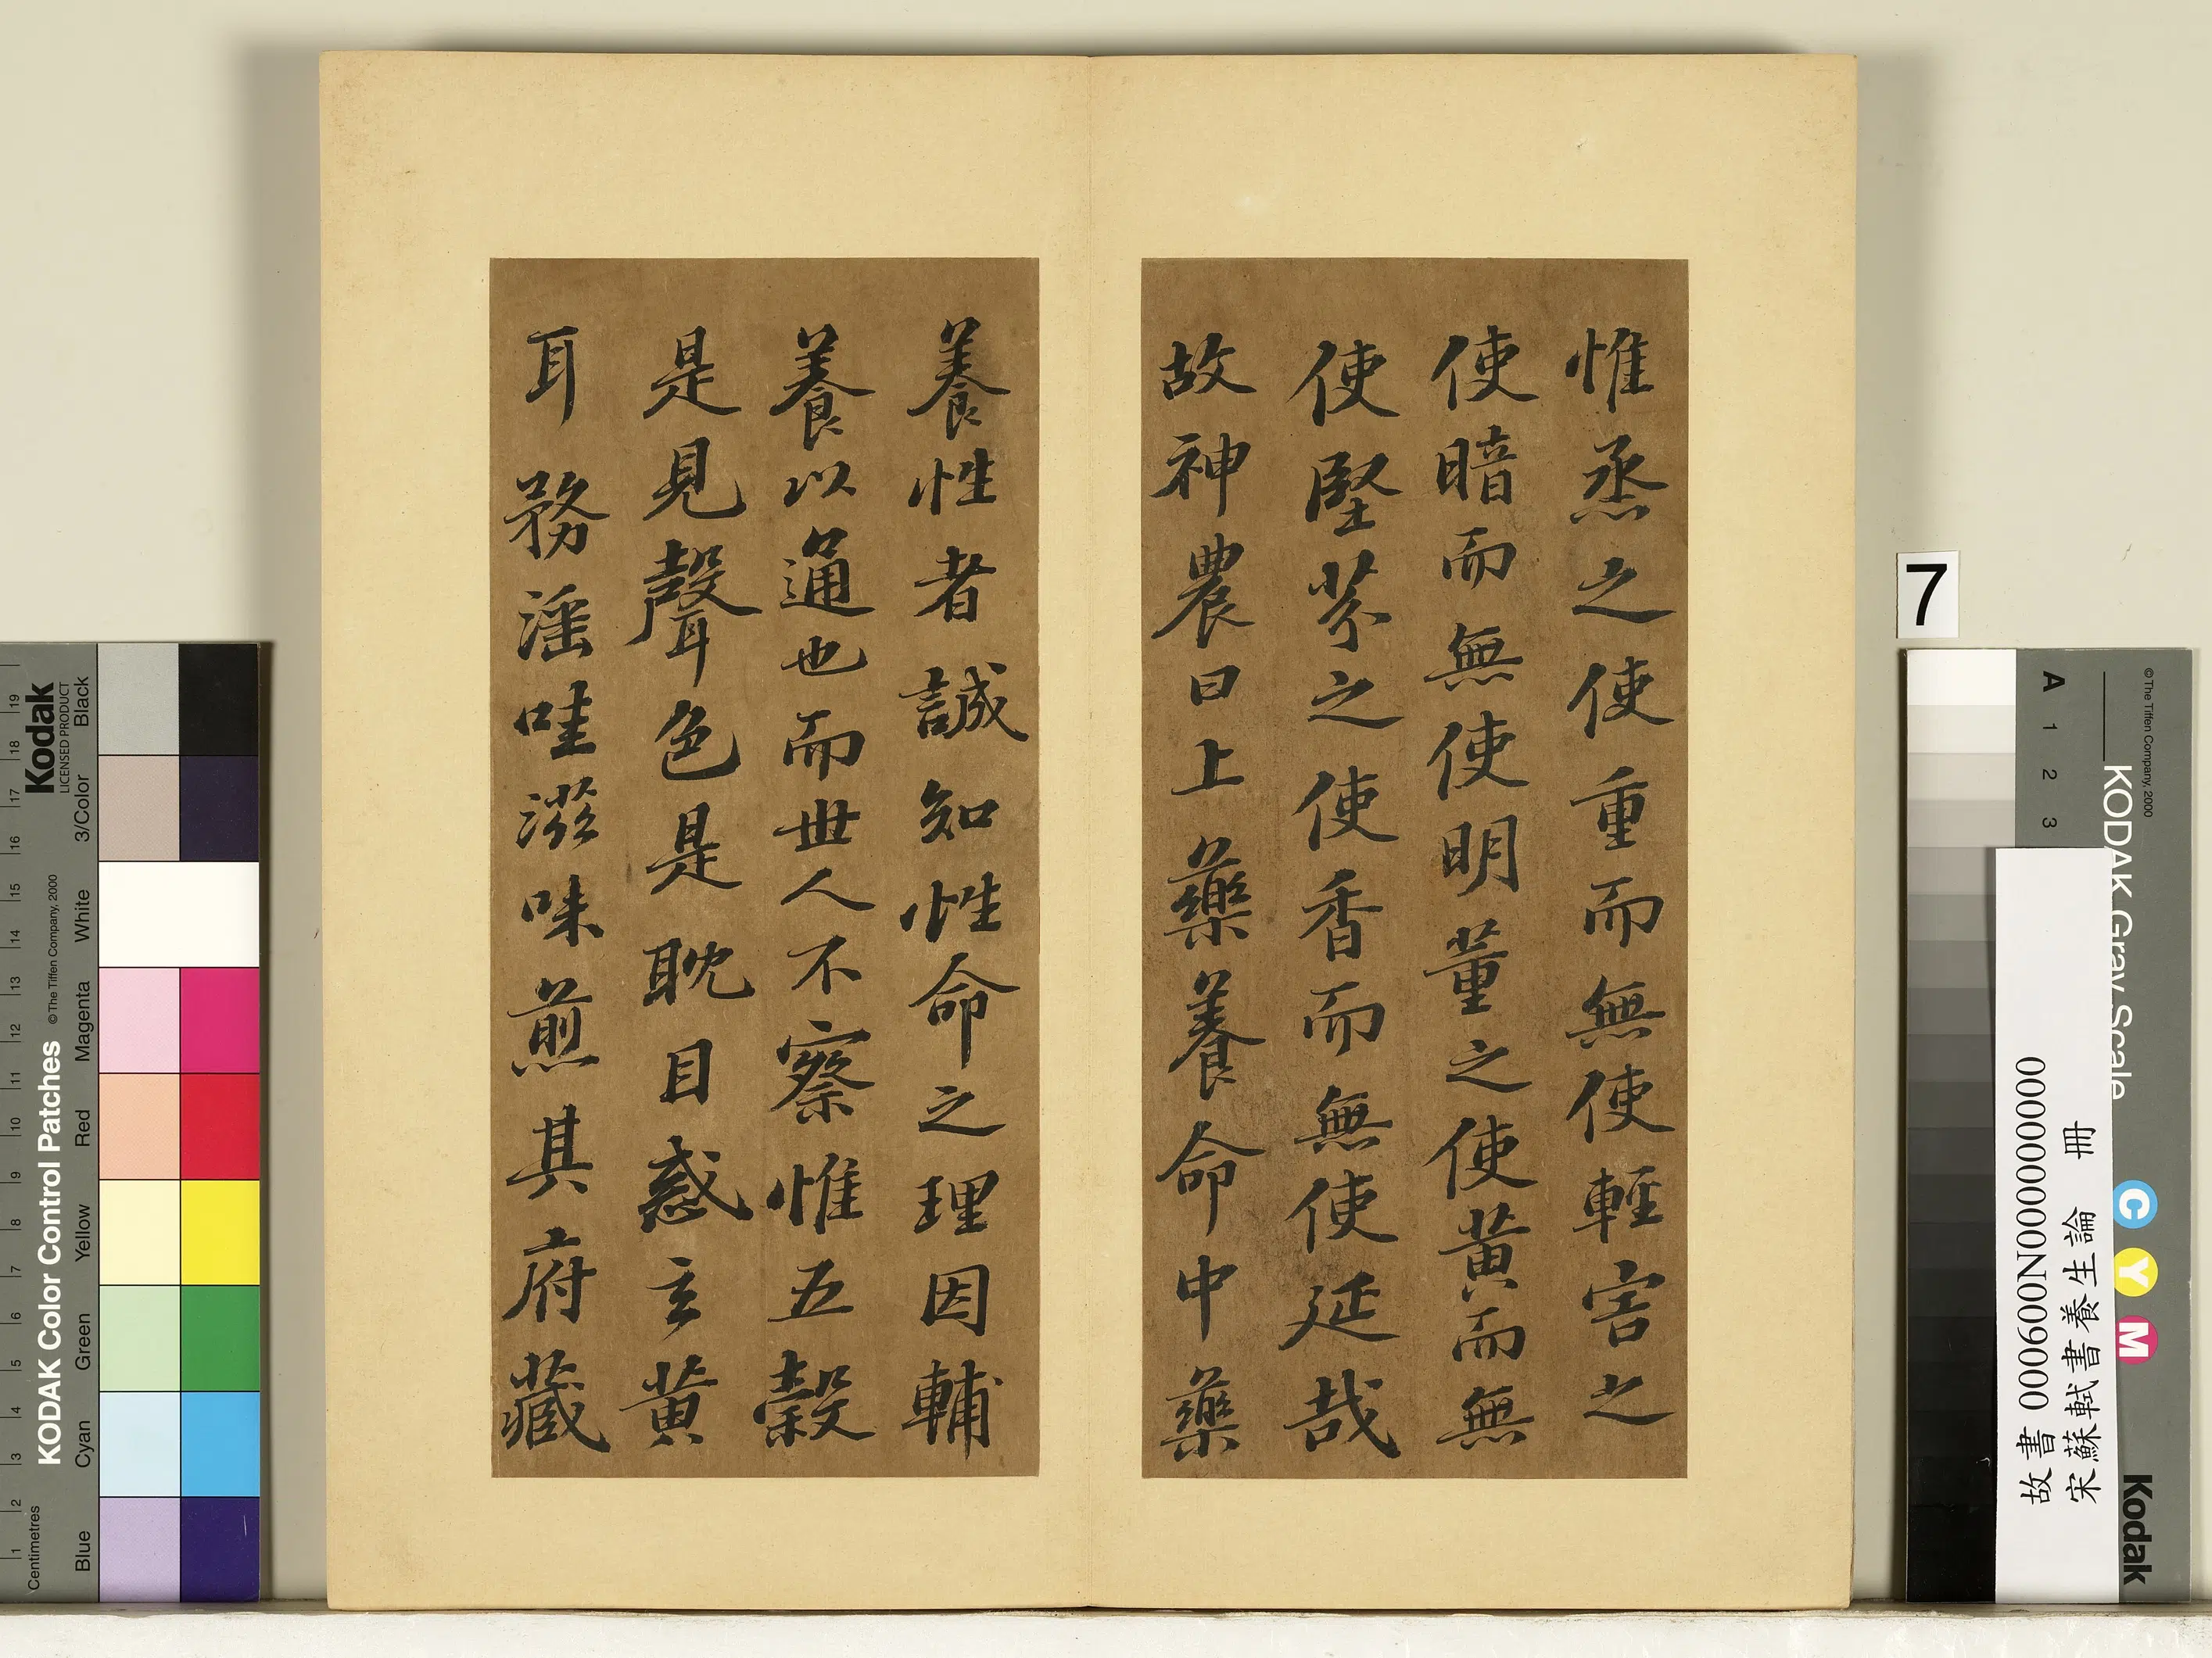 惟烝之使重而無使輕害之
使暗而無使明薰之使黃而無
使堅芬之使香而無使延哉
故神農曰上藥養命中藥
養性者誠知性命之理因輔
養以通也而世人不察惟五穀
是見聲色是耽目惑玄黃
耳務淫哇滋味煎其府藏
7
KODAK Color Control Patches
©The Tiffen Company, 2000
Kodak
LICENSED PRODUCT
Centimetres
1 2 3 4 5 6 7 8 9 10 11 12 13 14 15 16 17 18 19
Blue Cyan Green Yellow Red Magenta White 3/Color Black
KODAK Gray Scale
©The Tiffen Company, 2000
A 1 2 3
C Y M
Kodak
故書 000600N000000000
宋蘇軾書養生論 冊